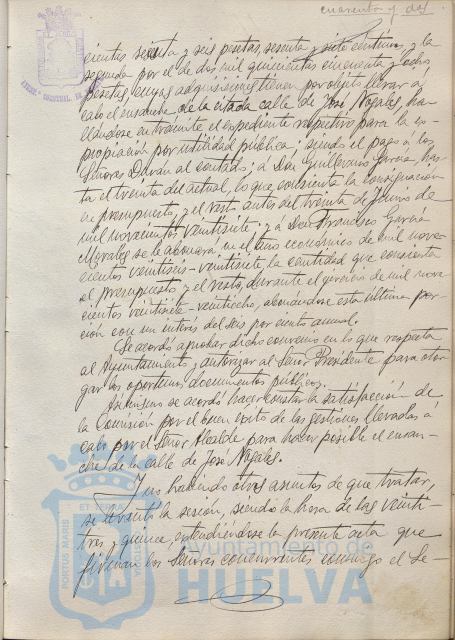 cuarenta y dos
cientas setenta y seis pesetas, sesenta y siete céntimos, y la
segunda por el de dos mil quinientas cincuenta y ocho
pesetas, cuyas adquisiciones tienen por objeto llevar á
cabo el ensanche de la citada calle de José Nogales, ha-
llándose en trámite el expediente respectivo para la ex-
propiación por utilidad pública; siendo el pago á los
Señores Durán al contado; á Don Guillermo García, has-
ta el treinta del actual, lo que consienta la consignación
en presupuesto, y el resto antes del treinta de Junio de
mil novecientos veintisiete; y á Don Francisco García
Morales se le abonará en el año económico de mil nove-
cientos veintiseis-veintisiete, la cantidad que consienta
el presupuesto y el resto, durante el ejercicio de mil nove-
cientos veintisiete-veintiocho, abonándose esta última por-
ción con un interés del seis por ciento anual.
Se acordó aprobar dichos convenios en lo que respecta
al Ayuntamiento y autorizar al Señor Presidente para otor-
gar los oportunos documentos públicos.
Asimismo se acordó hacer constar la satisfacción de
la Comisión por el buen éxito de las gestiones llevadas á
cabo por el Señor Alcalde para hacer posible el ensan-
che de la calle de José Nogales.
Y no habiendo otros asuntos de que tratar,
se levantó la sesión, siendo la hora de las veinti-
tres y quince, extendiéndose la presente acta que
firman los Señores concurrentes conmigo el Se-
PORTUS MARIS ET TERRAE CUSTODIA
Ayuntamiento de
HUELVA